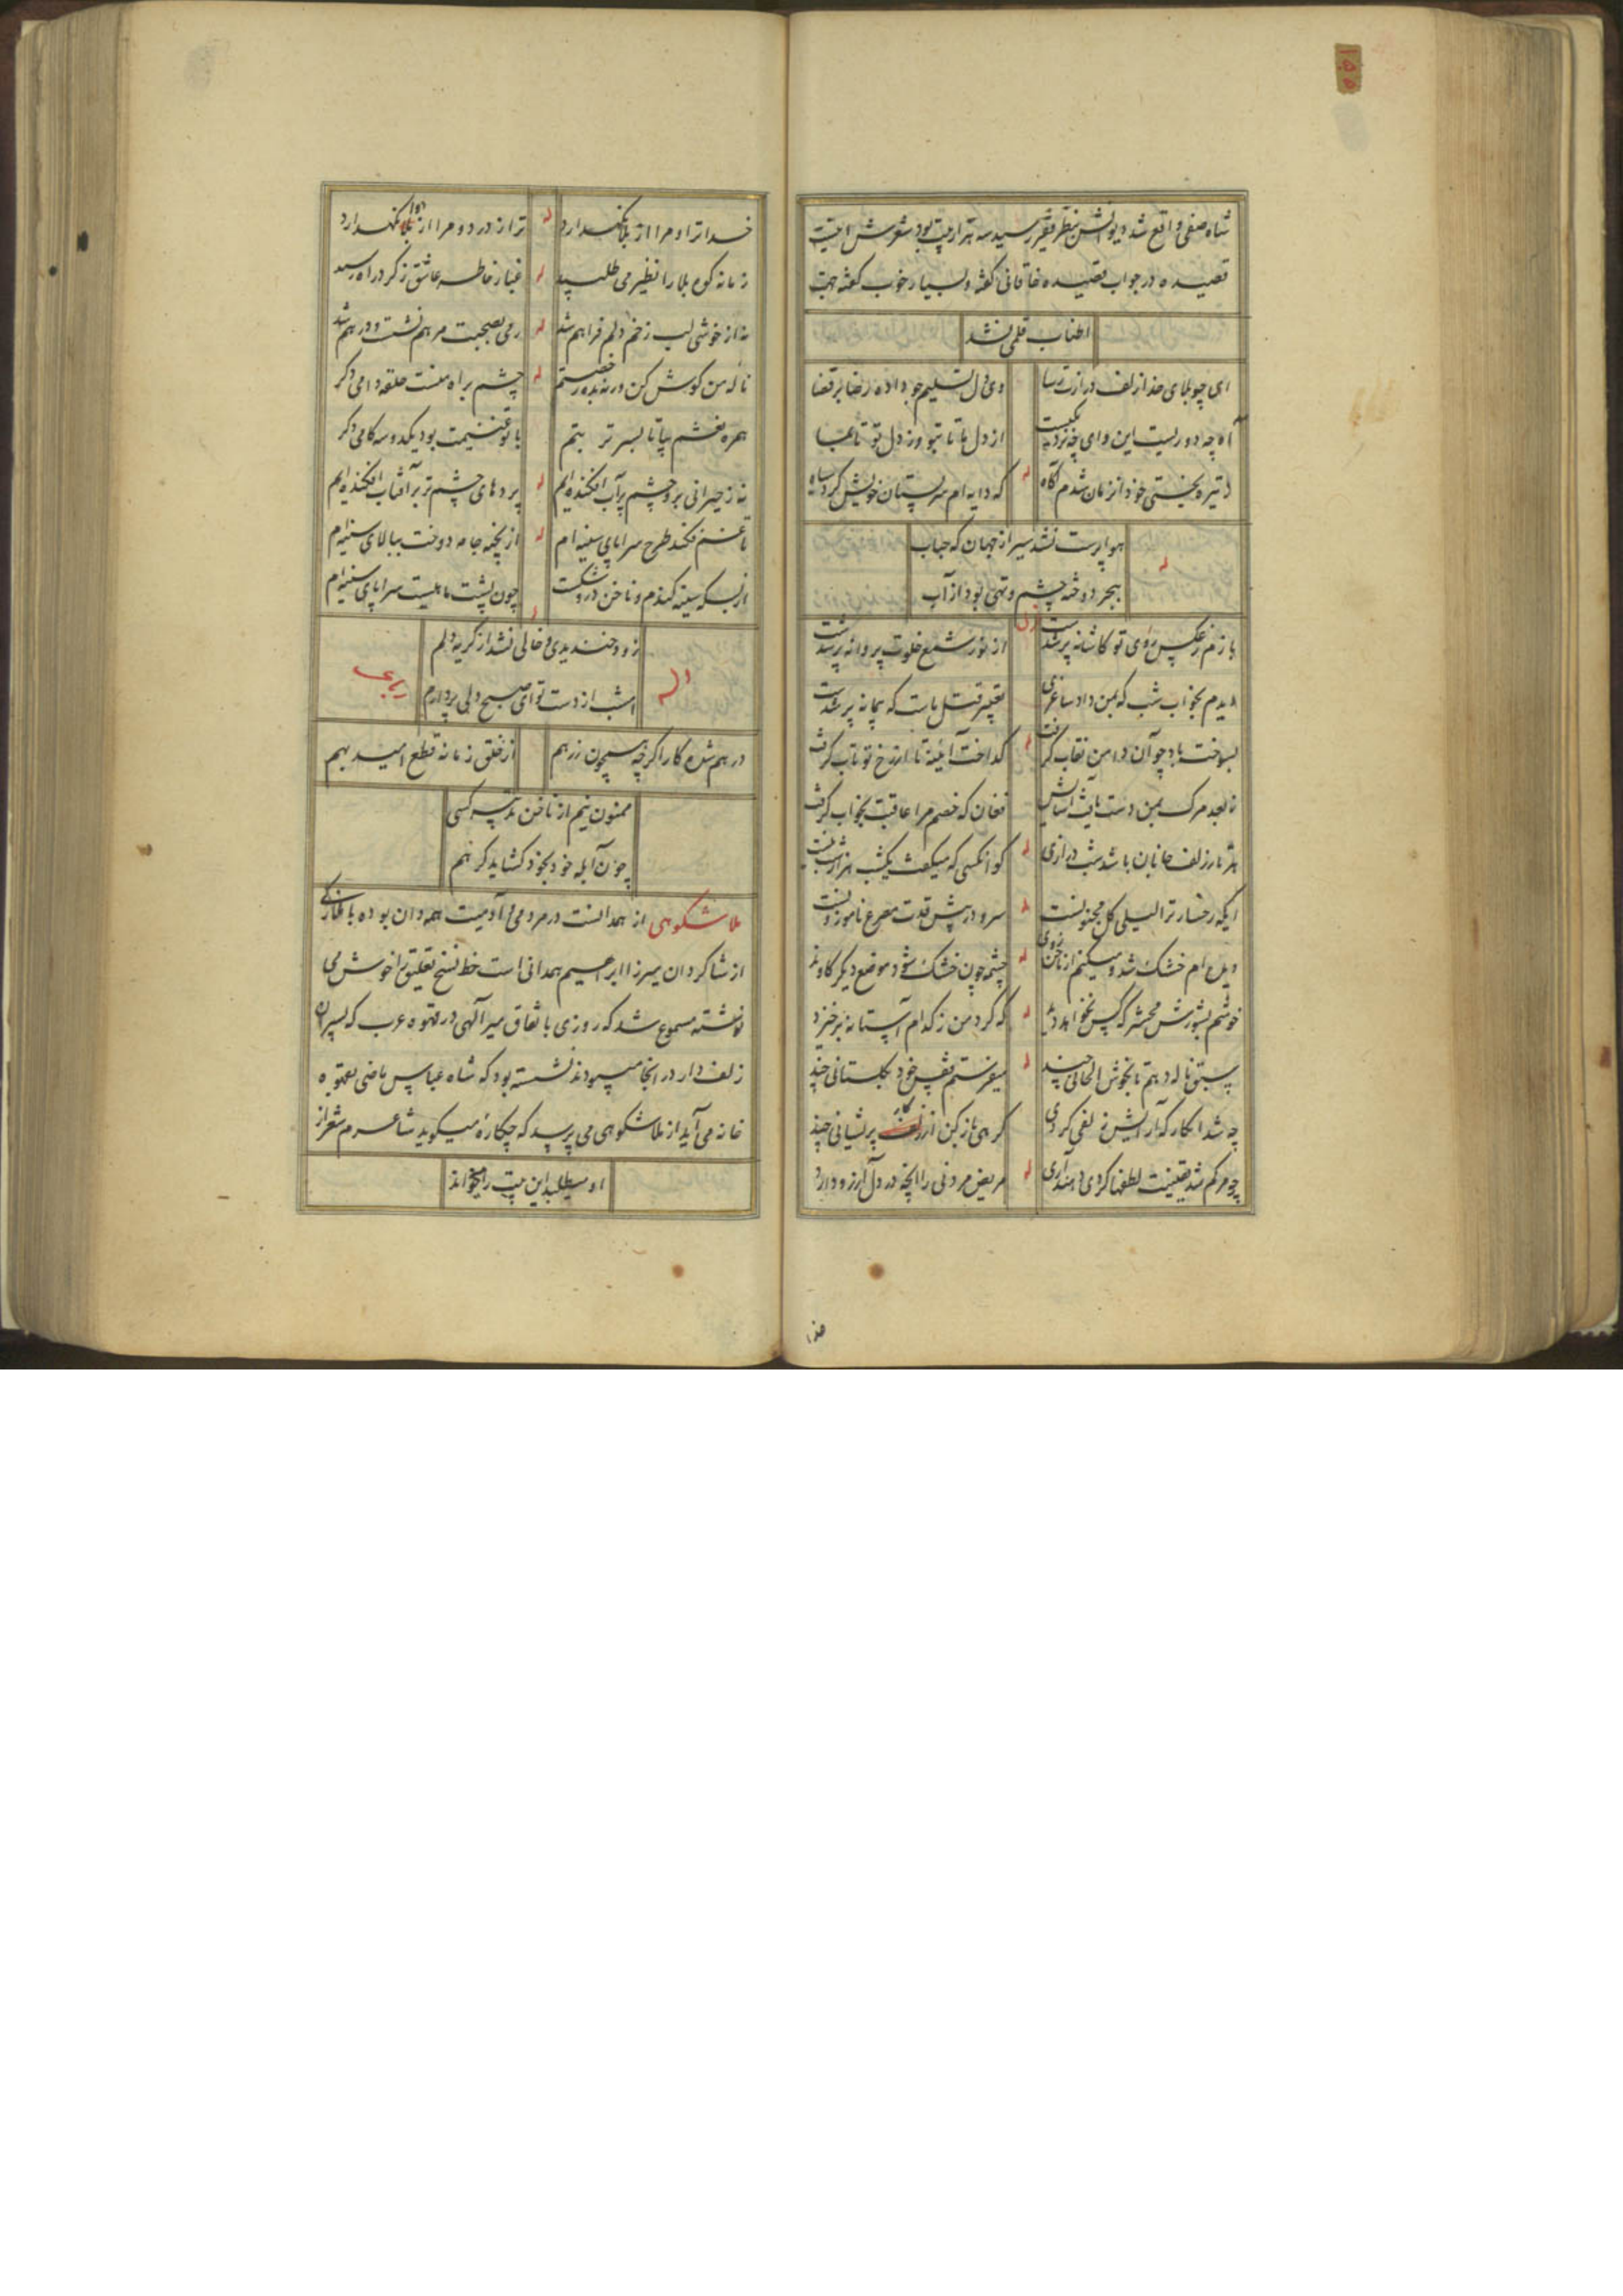 شاه صفی واقع شد دیوانش بنظر فقیر رسید سه هزار بیت بود شعرش اینست
قصیده در جواب قصیده خاقانی گفته و بسیار خوب گفته بجهت
اطناب قلمی نشد
ای چو بلای خدا زلف دراز رسا
وی دل تسلیم خو داده رضا بر قضا
آه چه دوریست این وای چه نزدیکیست
از دل ما تا بتو وز دل تو تا بما
ز تیره بختی خود آنزمان شدم آگاه
له
که دایه ام سر پستان خویش کرد سیاه
هواپرست نشد سیر از جهان که حباب
له
ببحر دوخته چشم و تهی بود از آب
بازم ز عکس روی تو کاشانه پر شدست
از نور شمع خلوت پروانه پر شدست
دیدم بخواب شب که بمن داد ساغری
تعبیر قتل ماست که پیمانه پر شدست
بسوخت باد چو آن دامن نقاب گرفت
گداخت آئینه تا از رخ تو تاب گرفت
نا بعد مرگ بمن دست یافت آسایش
فغان که خصم مرا عاقبت بخواب گرفت
هر تار زلف جانان باشد شب درازی
له
کو آنکسی که میگفت یکشب هزار شب نیست
ایکه رخسار ترا لیلی گل مجنونست
له
سرو در پیش قدت مصرع ناموزونست
دیده ام خشک شد و میکنم از ناخن روی
له
چشمه چون خشک شود موضع دیگر کاوند
خوشم بشورش محشر که پس نخواهد داد
له
که گرد من ز کدام آستانه برخیزد
سبق ناله دهم تا بخوش الحانی چند
له
میفرستم قفس خود بگلستانی چند
چه شد انکار که آرایش زلفی کردی
گرهی باز کن از کار پریشانی چند
چو مرگم شد یقینت لطفها کردی و بند آری
له
مریض مردنی را آنچه در دل آرزو دارد
خدا ترا و مرا از بلا نگهدارد
له
ترا ز درد و مرا از دوا نگهدارد
زمانه کوه بلا را نظیر می طلبید
له
غبار خاطر عاشق ز گرد راه رسید
نه از خوشی لب زخم دلم فراهم شد
له
دمی بصحبت مرهم نشست و درهم شد
ناله من گوش کن ورنه بده رخصتم
له
چشم براه منست حلقه دامی دگر
همره نعشم بیا تا بسر تربتم
با تو غنیمت بود یکدوسه گامی دگر
نه ز حیرانی برو چشم پرآب افکنده ایم
له
پردهای چشم تر بر آفتاب افکنده ایم
تا غم فکند طرح سراپای سینه ام
له
از پنجه جامه دوخت ببالای سینه ام
از بسکه سینه کندم و ناخن درو شکست
چون پشت ماهیست سراپای سینه ام
زود خندیدی و خالی نشد از گریه دلم
وله
رباعی
امشب از دست تو ای صبح دلی پر دارم
درهم شده کار اگرچه همچون زرهم
از خلق زمانه قطع امید بهم
ممنون نیم از ناخن تدبیر کسی
چون آبله خود بخود گشاید گرهم
ملا شکوهی از همدانست در مردمی و آدمیت همه دان بوده
از شاگردان میرزا ابراهیم همدانی است خط نسخ تعلیق را خوش می
نوشته مسموع شد که روزی باتفاق میر آلهی در قهوه عرب که پسران
زلف دار در انجا میبودند نشسته بود که شاه عباس ماضی بقهوه
خانه می آید از ملا شکوهی می پرسد که چکاره میگوید شاعرم شعر از
او میطلبد این بیت را میخواند